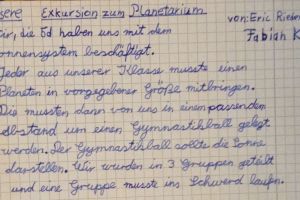 sere Exkursion zum Planetarium
von: Eric Rieder
Fabian K
ir, die 5d haben uns mit dem
onnensystem beschäftigt.
Jeder aus unserer Klasse musste einen
Planeten in vorgegebener Größe mitbringen.
Die mussten dann von uns in einem passenden
Abstand um einen Gymnastikball gelegt
werden. Der Gymnastikball sollte die Sonne
darstellen. Wir wurden in 3 Gruppen geteilt
und eine Gruppe musste ins Schwerd laufen.